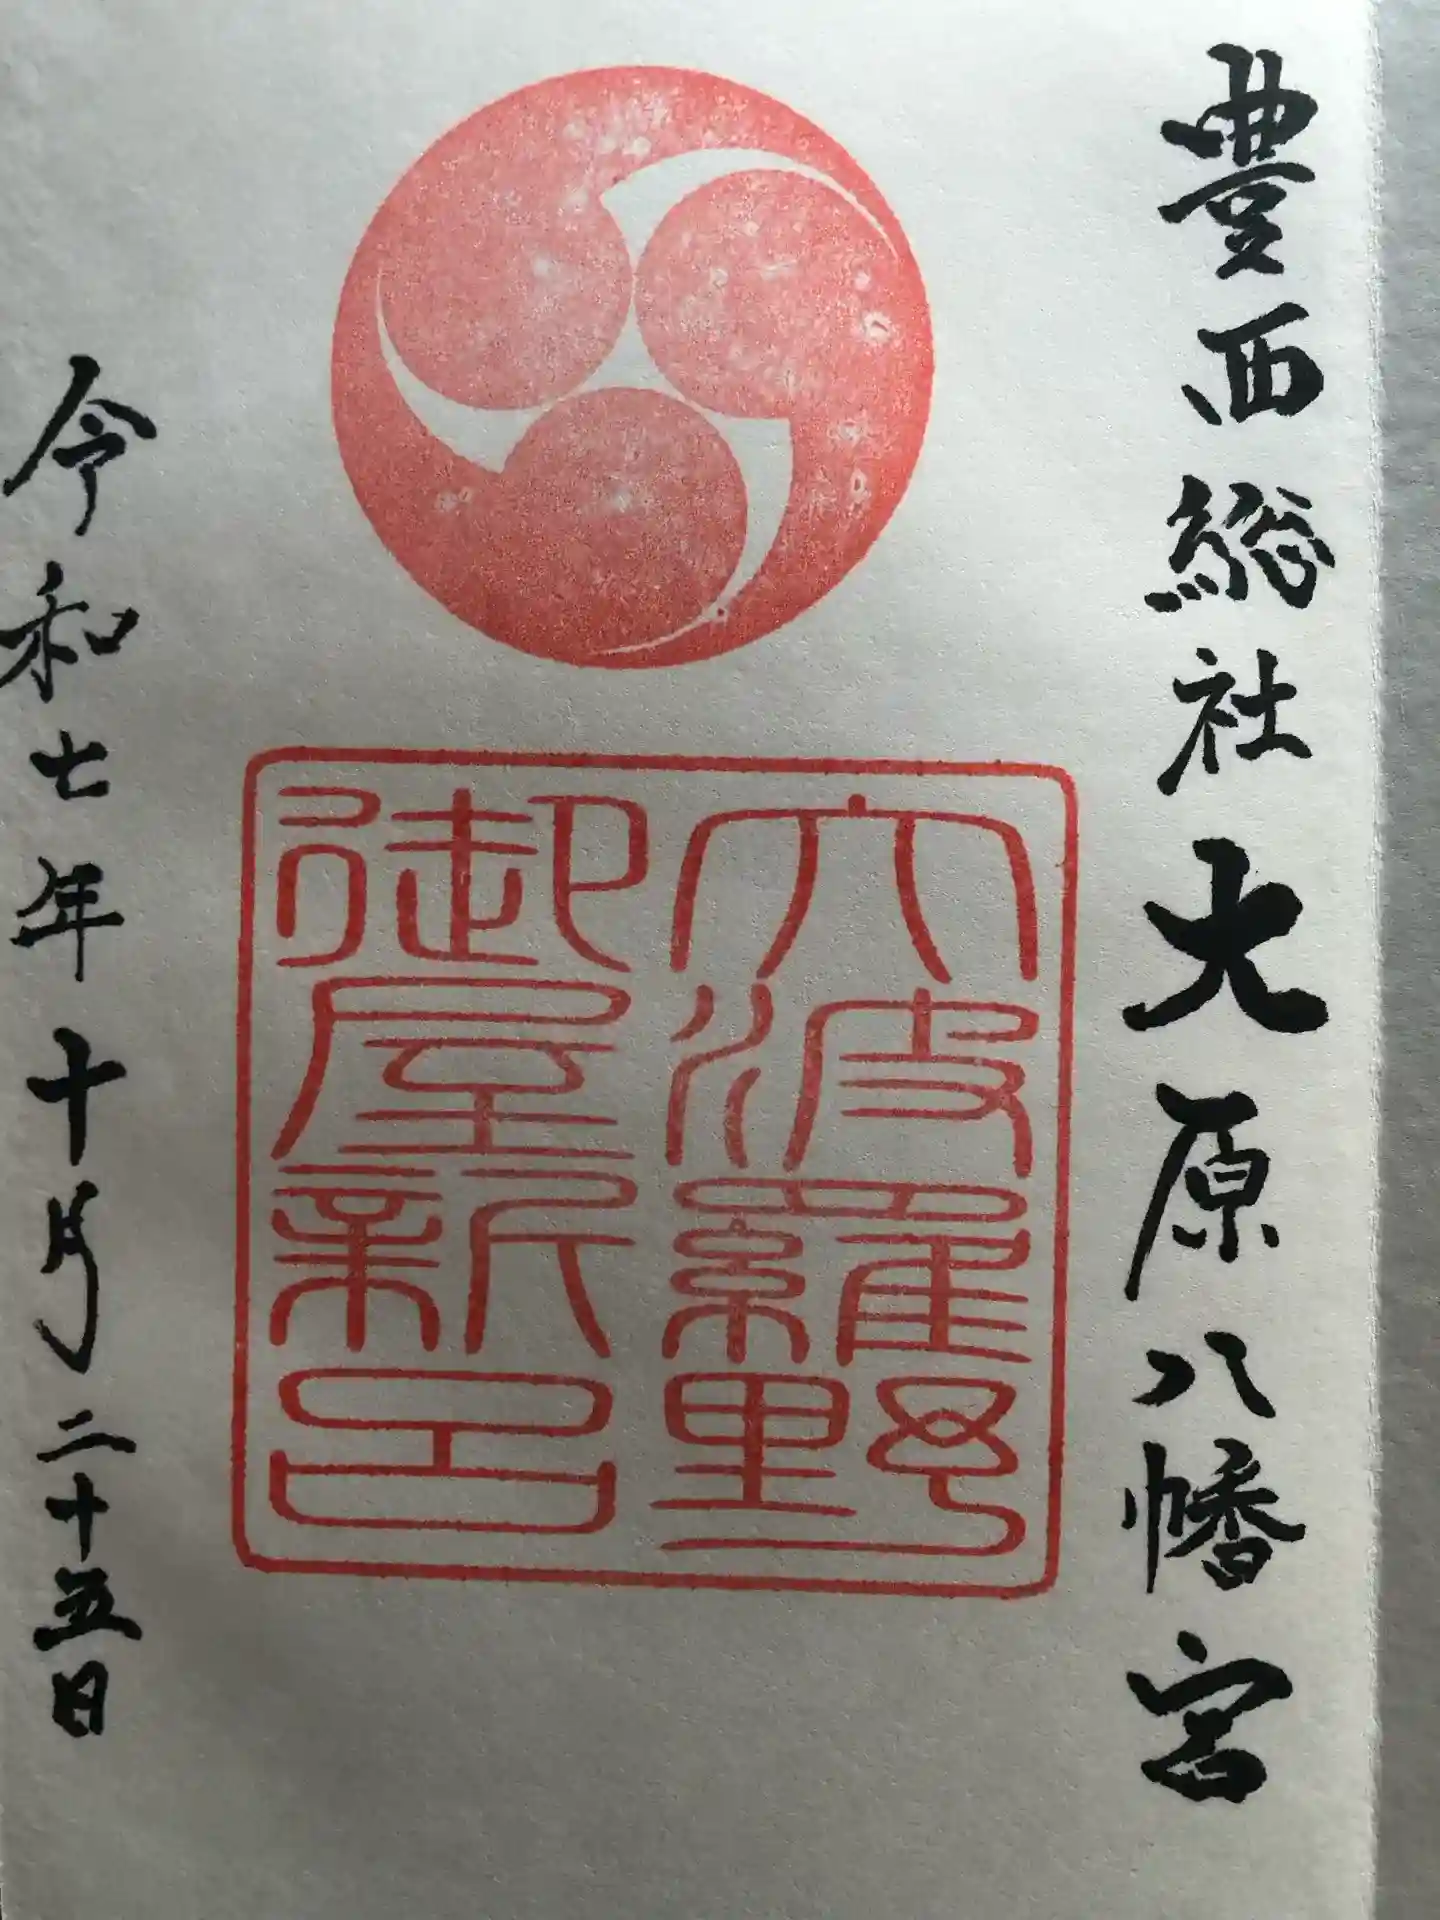 豊西総社大原八幡宮
大波羅野
御屋新
令和七年十月二十五日